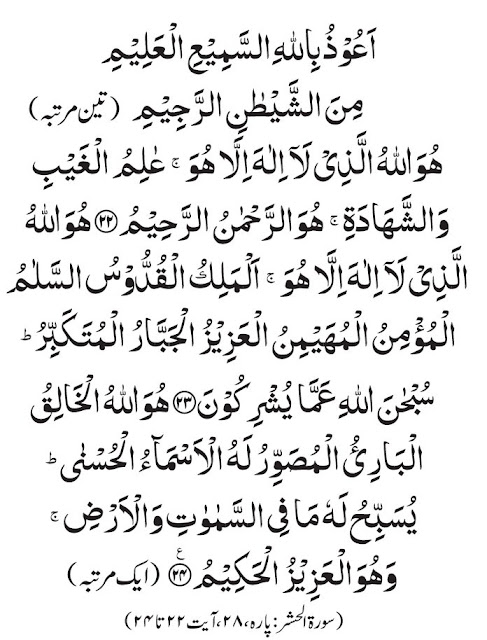 اَعُوْذُ بِاللهِ السَّمِيْعِ الْعَلِيْمِ
مِنَ الشَّيْطٰنِ الرَّجِيْمِ (تین مرتبہ)
هُوَ اللهُ الَّذِيْ لَاۤ اِلٰهَ اِلَّا هُوَ ۚ عٰلِمُ الْغَيْبِ
وَالشَّهَادَةِ ۚ هُوَ الرَّحْمٰنُ الرَّحِيْمُ ﴿۲۲﴾ هُوَ اللهُ
الَّذِيْ لَاۤ اِلٰهَ اِلَّا هُوَ ۚ اَلْمَلِكُ الْقُدُّوْسُ السَّلٰمُ
الْمُؤْمِنُ الْمُهَيْمِنُ الْعَزِيْزُ الْجَبَّارُ الْمُتَكَبِّرُ ؕ
سُبْحٰنَ اللهِ عَمَّا يُشْرِكُوْنَ ﴿۲۳﴾ هُوَ اللهُ الْخَالِقُ
الْبَارِئُ الْمُصَوِّرُ لَهُ الْاَسْمَآءُ الْحُسْنٰى ؕ
يُسَبِّحُ لَهٗ مَا فِي السَّمٰوٰتِ وَالْاَرْضِ ۚ
وَهُوَ الْعَزِيْزُ الْحَكِيْمُ ﴿۲۴﴾ ع (ایک مرتبہ)
(سورۃ الحشر: پارہ ۲۸، آیت ۲۲ تا ۲۴)